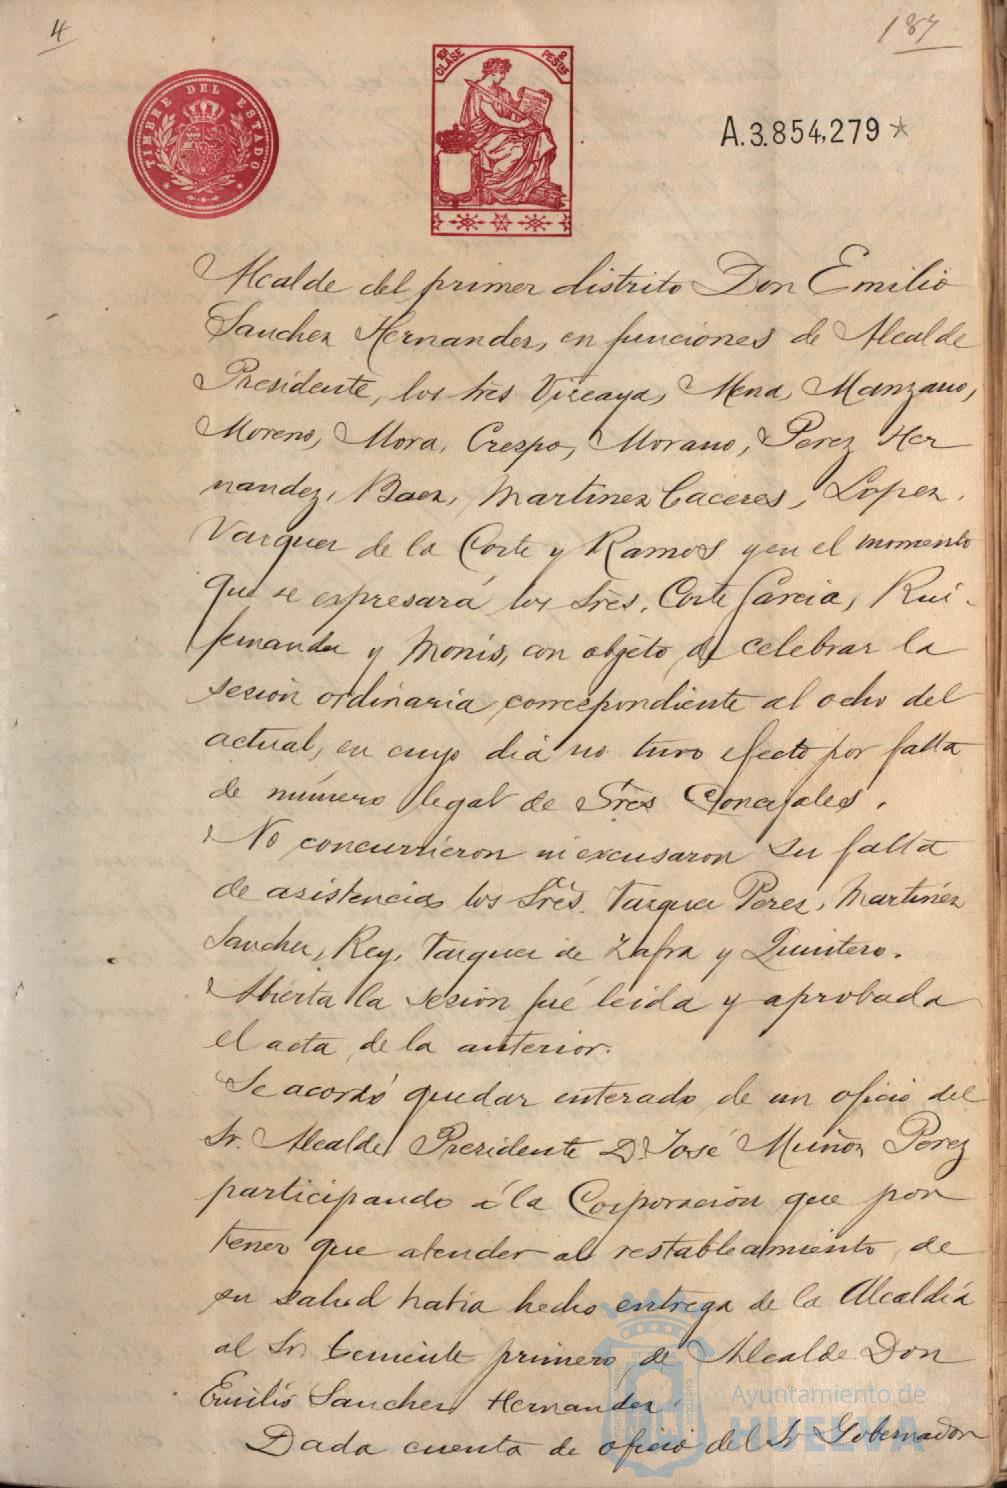 4
187
TIMBRE DEL ESTADO
11ª CLASE
2 PESETAS
A.3.854,279 *
Alcalde del primer distrito Don Emilio
Sanchez Hernandez, en funciones de Alcalde
Presidente, los Sres Vizcaya, Mena, Manzano,
Moreno, Mora, Crespo, Morano, Perez Her
nandez, Baez, Martinez Caceres, Lopez,
Vazquez de la Corte y Ramos y en el momento
que se expresará los Sres. Corte Garcia, Rui-
fernandez y Monis, con objeto de celebrar la
sesion ordinaria correspondiente al ocho del
actual, en cuyo dia no tuvo efecto por falta
de número legal de Sres Concejales.
No concurrieron ni excusaron su falta
de asistencia los Sres. Vazquez Perez, Martinez
Sanchez, Rey, Vazquez de Zafra y Quintero.
Abierta la sesion fué leida y aprobada
el acta de la anterior.
Se acordó quedar enterado de un oficio del
Sr. Alcalde Presidente D. José Muñoz Perez
participando á la Corporacion que por
tener que atender al restableamiento de
su salud habia hecho entrega de la Alcaldia
al Sr. teniente primero de Alcalde Don
Emilio Sanchez Hernandez.
Dada cuenta de oficio del Sr Gobernador
Ayuntamiento de
HUELVA